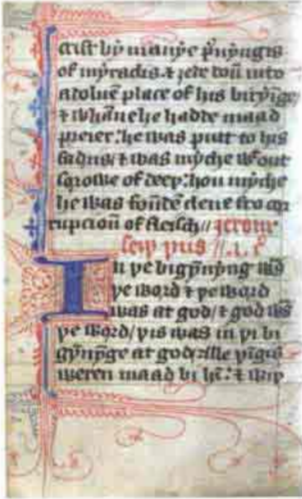 crist bi manye p̄uyngis
of myraclis. & ȝede doū into
a doluē place of his biryīge
& whāne he hadde maad
preier: he was putt to his
fadris/ & was myche wtout
sorowe of deeþ. hou myche
he was foūdē clene fro cor
rupcioū of fleisch // ierom
seiþ þus //. i. c̄
In þe bigynnyng was
þe word & þe word
was at god/ & god was
þe word/ þis was in þe bi
gynnynge at god/ alle þingis
weren maad bi hī: & wiþ